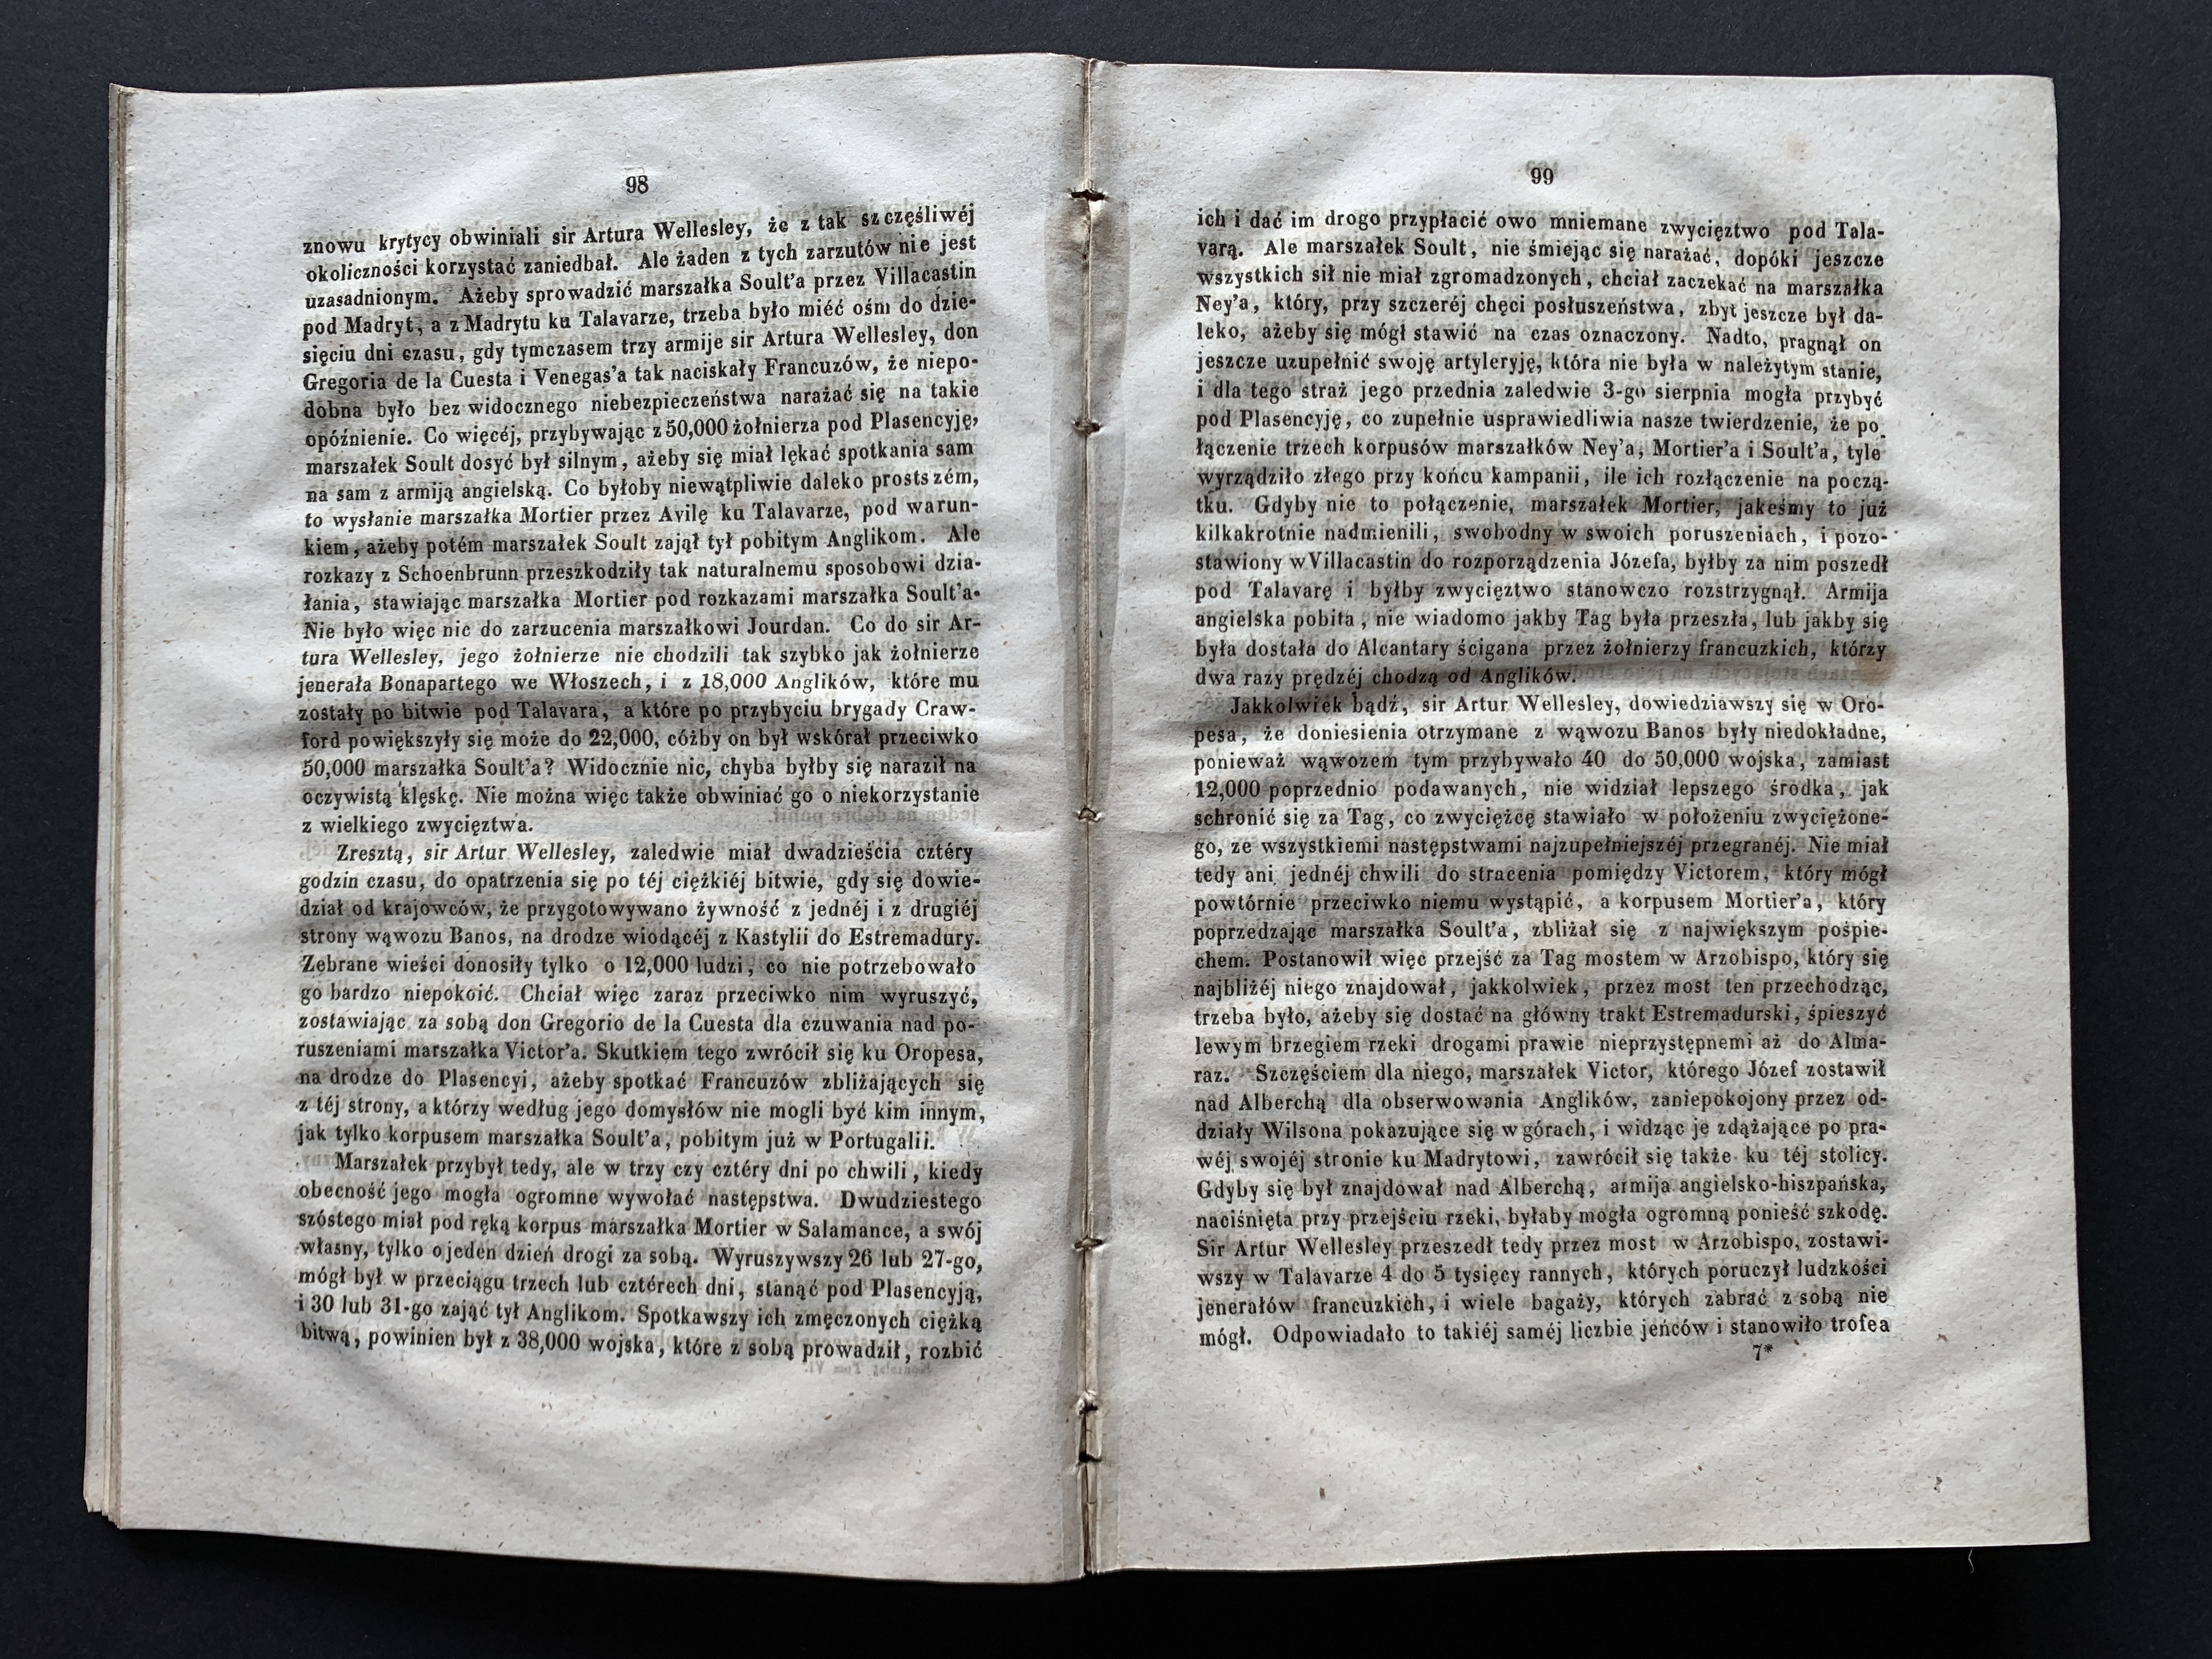 98
znowu krytycy obwiniali sir Artura Wellesley, że z tak szczęśliwéj
okoliczności korzystać zaniedbał. Ale żaden z tych zarzutów nie jest
uzasadnionym. Ażeby sprowadzić marszałka Soult'a przez Villacastin
pod Madryt, a z Madrytu ku Talavarze, trzeba było miéć ośm do dzie-
sięciu dni czasu, gdy tymczasem trzy armije sir Artura Wellesley, don
Gregoria de la Cuesta i Venegas'a tak naciskały Francuzów, że niepo-
dobna było bez widocznego niebezpieczeństwa narażać się na takie
opóźnienie. Co więcéj, przybywając z 50,000 żołnierza pod Plasencyję,
marszałek Soult dosyć był silnym, ażeby się miał lękać spotkania sam
na sam z armiją angielską. Co byłoby niewątpliwie daleko prostszém,
to wysłanie marszałka Mortier przez Avilę ku Talavarze, pod warun-
kiem, ażeby potém marszałek Soult zajął tył pobitym Anglikom. Ale
rozkazy z Schoenbrunn przeszkodziły tak naturalnemu sposobowi dzia-
łania, stawiając marszałka Mortier pod rozkazami marszałka Soult'a.
Nie było więc nic do zarzucenia marszałkowi Jourdan. Co do sir Ar-
tura Wellesley, jego żołnierze nie chodzili tak szybko jak żołnierze
jenerała Bonapartego we Włoszech, i z 18,000 Anglików, które mu
zostały po bitwie pod Talavara, a które po przybyciu brygady Craw-
ford powiększyły się może do 22,000, cóżby on był wskórał przeciwko
50,000 marszałka Soult'a? Widocznie nic, chyba byłby się naraził na
oczywistą klęskę. Nie można więc także obwiniać go o niekorzystanie
z wielkiego zwycięztwa.
Zresztą, sir Artur Wellesley, zaledwie miał dwadzieścia cztéry
godzin czasu, do opatrzenia się po téj ciężkiéj bitwie, gdy się dowie-
dział od krajowców, że przygotowywano żywność z jednéj i z drugiéj
strony wąwozu Banos, na drodze wiodącéj z Kastylii do Estremadury.
Zebrane wieści donosiły tylko o 12,000 ludzi, co nie potrzebowało
go bardzo niepokoić. Chciał więc zaraz przeciwko nim wyruszyć,
zostawiając za sobą don Gregorio de la Cuesta dla czuwania nad po-
ruszeniami marszałka Victor'a. Skutkiem tego zwrócił się ku Oropesa,
na drodze do Plasencyi, ażeby spotkać Francuzów zbliżających się
z téj strony, a którzy według jego domysłów nie mogli być kim innym,
jak tylko korpusem marszałka Soult'a, pobitym już w Portugalii.
Marszałek przybył tedy, ale w trzy czy cztéry dni po chwili, kiedy
obecność jego mogła ogromne wywołać następstwa. Dwudziestego
szóstego miał pod ręką korpus marszałka Mortier w Salamance, a swój
własny, tylko o jeden dzień drogi za sobą. Wyruszywszy 26 lub 27-go,
mógł był w przeciągu trzech lub cztérech dni, stanąć pod Plasencyją,
i 30 lub 31-go zająć tył Anglikom. Spotkawszy ich zmęczonych ciężką
bitwą, powinien był z 38,000 wojska, które z sobą prowadził, rozbić
99
ich i dać im drogo przypłacić owo mniemane zwycięztwo pod Tala-
varą. Ale marszałek Soult, nie śmiejąc się narażać, dopóki jeszcze
wszystkich sił nie miał zgromadzonych, chciał zaczekać na marszałka
Ney'a, który, przy szczeréj chęci posłuszeństwa, zbyt jeszcze był da-
leko, ażeby się mógł stawić na czas oznaczony. Nadto, pragnął on
jeszcze uzupełnić swoję artyleryję, która nie była w należytym stanie,
i dla tego straż jego przednia zaledwie 3-go sierpnia mogła przybyć
pod Plasencyję, co zupełnie usprawiedliwia nasze twierdzenie, że po-
łączenie trzech korpusów marszałków Ney'a, Mortier'a i Soult'a, tyle
wyrządziło złego przy końcu kampanii, ile ich rozłączenie na począ-
tku. Gdyby nie to połączenie, marszałek Mortier, jakeśmy to już
kilkakrotnie nadmienili, swobodny w swoich poruszeniach, i pozo-
stawiony w Villacastin do rozporządzenia Józefa, byłby za nim poszedł
pod Talavarę i byłby zwycięztwo stanowczo rozstrzygnął. Armija
angielska pobita, nie wiadomo jakby Tag była przeszła, lub jakby się
była dostała do Alcantary ścigana przez żołnierzy francuzkich, którzy
dwa razy prędzéj chodzą od Anglików.
Jakkolwiek bądź, sir Artur Wellesley, dowiedziawszy się w Oro-
pesa, że doniesienia otrzymane z wąwozu Banos były niedokładne,
ponieważ wąwozem tym przybywało 40 do 50,000 wojska, zamiast
12,000 poprzednio podawanych, nie widział lepszego środka, jak
schronić się za Tag, co zwyciężcę stawiało w położeniu zwyciężone-
go, ze wszystkiemi następstwami najzupełniejszéj przegranéj. Nie miał
tedy ani jednéj chwili do stracenia pomiędzy Victorem, który mógł
powtórnie przeciwko niemu wystąpić, a korpusem Mortier'a, który
poprzedzając marszałka Soult'a, zbliżał się z największym pośpie-
chem. Postanowił więc przejść za Tag mostem w Arzobispo, który się
najbliżéj niego znajdował, jakkolwiek, przez most ten przechodząc,
trzeba było, ażeby się dostać na główny trakt Estremadurski, śpieszyć
lewym brzegiem rzeki drogami prawie nieprzystępnemi aż do Alma-
raz. Szczęściem dla niego, marszałek Victor, którego Józef zostawił
nad Alberchą dla obserwowania Anglików, zaniepokojony przez od-
działy Wilsona pokazujące się w górach, i widząc je zdążające po pra-
wéj swojéj stronie ku Madrytowi, zawrócił się także ku téj stolicy.
Gdyby się był znajdował nad Alberchą, armija angielsko-hiszpańska,
naciśnięta przy przejściu rzeki, byłaby mogła ogromną ponieść szkodę.
Sir Artur Wellesley przeszedł tedy przez most w Arzobispo, zostawi-
wszy w Talavarze 4 do 5 tysięcy rannych, których poruczył ludzkości
jenerałów francuzkich, i wiele bagaży, których zabrać z sobą nie
mógł. Odpowiadało to takiéj saméj liczbie jeńców i stanowiło trofea
7*